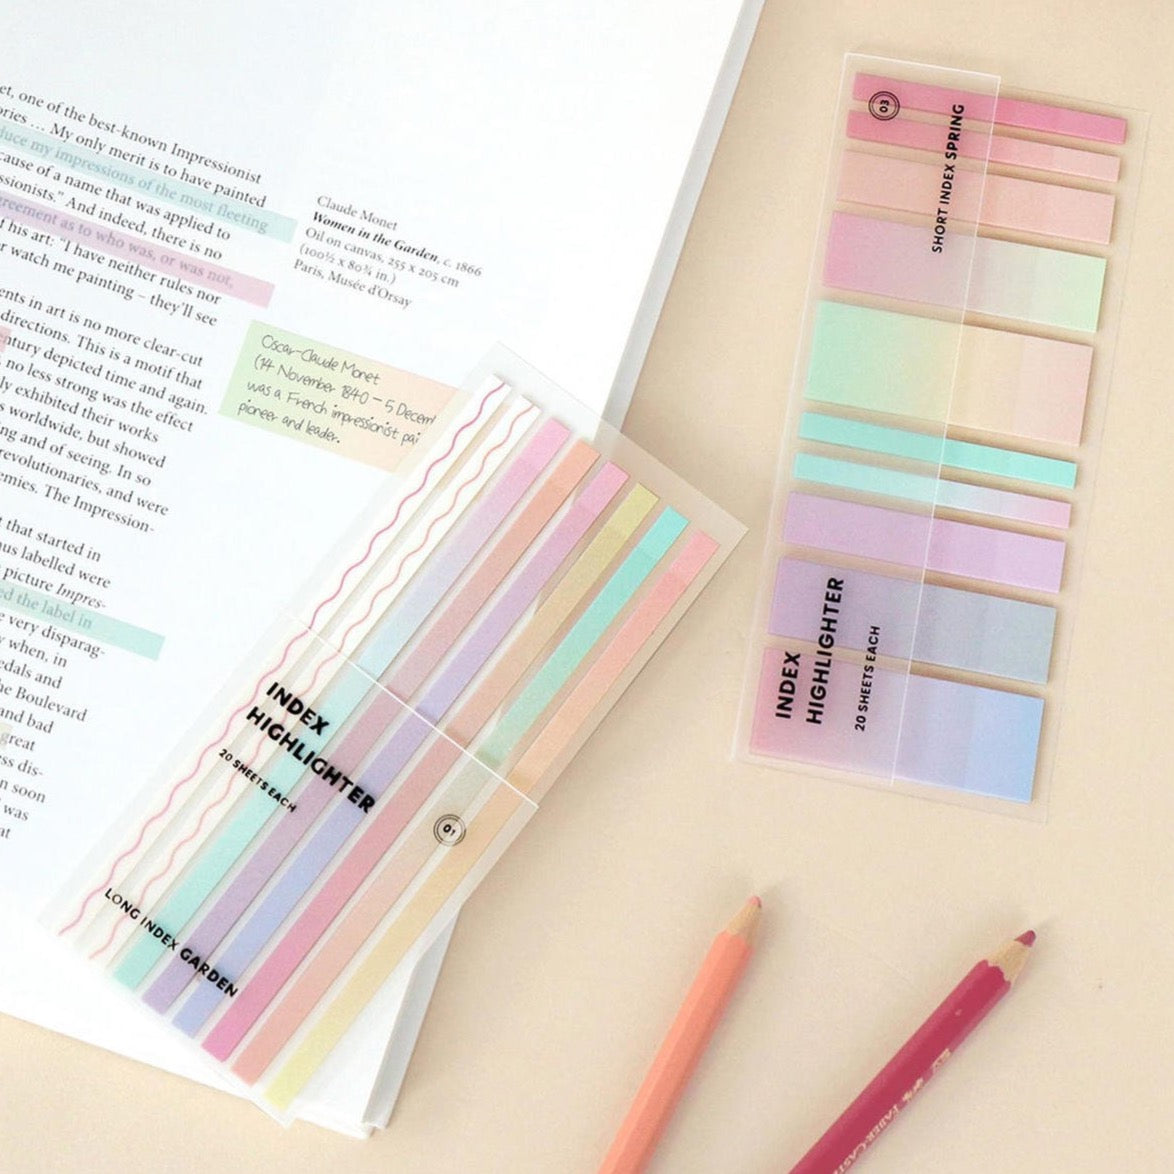 et, one of the best-known Impressionist
ories ... My only merit is to have painted
duce my impressions of the most fleeting
cause of a name that was applied to
ssionists." And indeed, there is no
greement as to who was, or was not,
t his art: "I have neither rules nor
r watch me painting – they'll see
ents in art is no more clear-cut
directions. This is a motif that
ntury depicted time and again.
no less strong was the effect
ly exhibited their works
s worldwide, but showed
ng and of seeing. In so
revolutionaries, and were
emies. The Impression-
that started in
nus labelled were
picture Impres-
ed the label in
e very disparag-
y when, in
edals and
he Boulevard
and bad
great
ss dis-
n soon
was
at
Claude Monet
Women in the Garden, c. 1866
Oil on canvas, 255 x 205 cm
(100½ x 80¾ in.)
Paris, Musée d'Orsay
Oscar-Claude Monet
(14 November 1840 – 5 Decem
was a French impressionist pai
pioneer and leader.
INDEX
HIGHLIGHTER
20 SHEETS EACH
01
LONG INDEX GARDEN
03
SHORT INDEX SPRING
INDEX
HIGHLIGHTER
20 SHEETS EACH
FABER-CAST